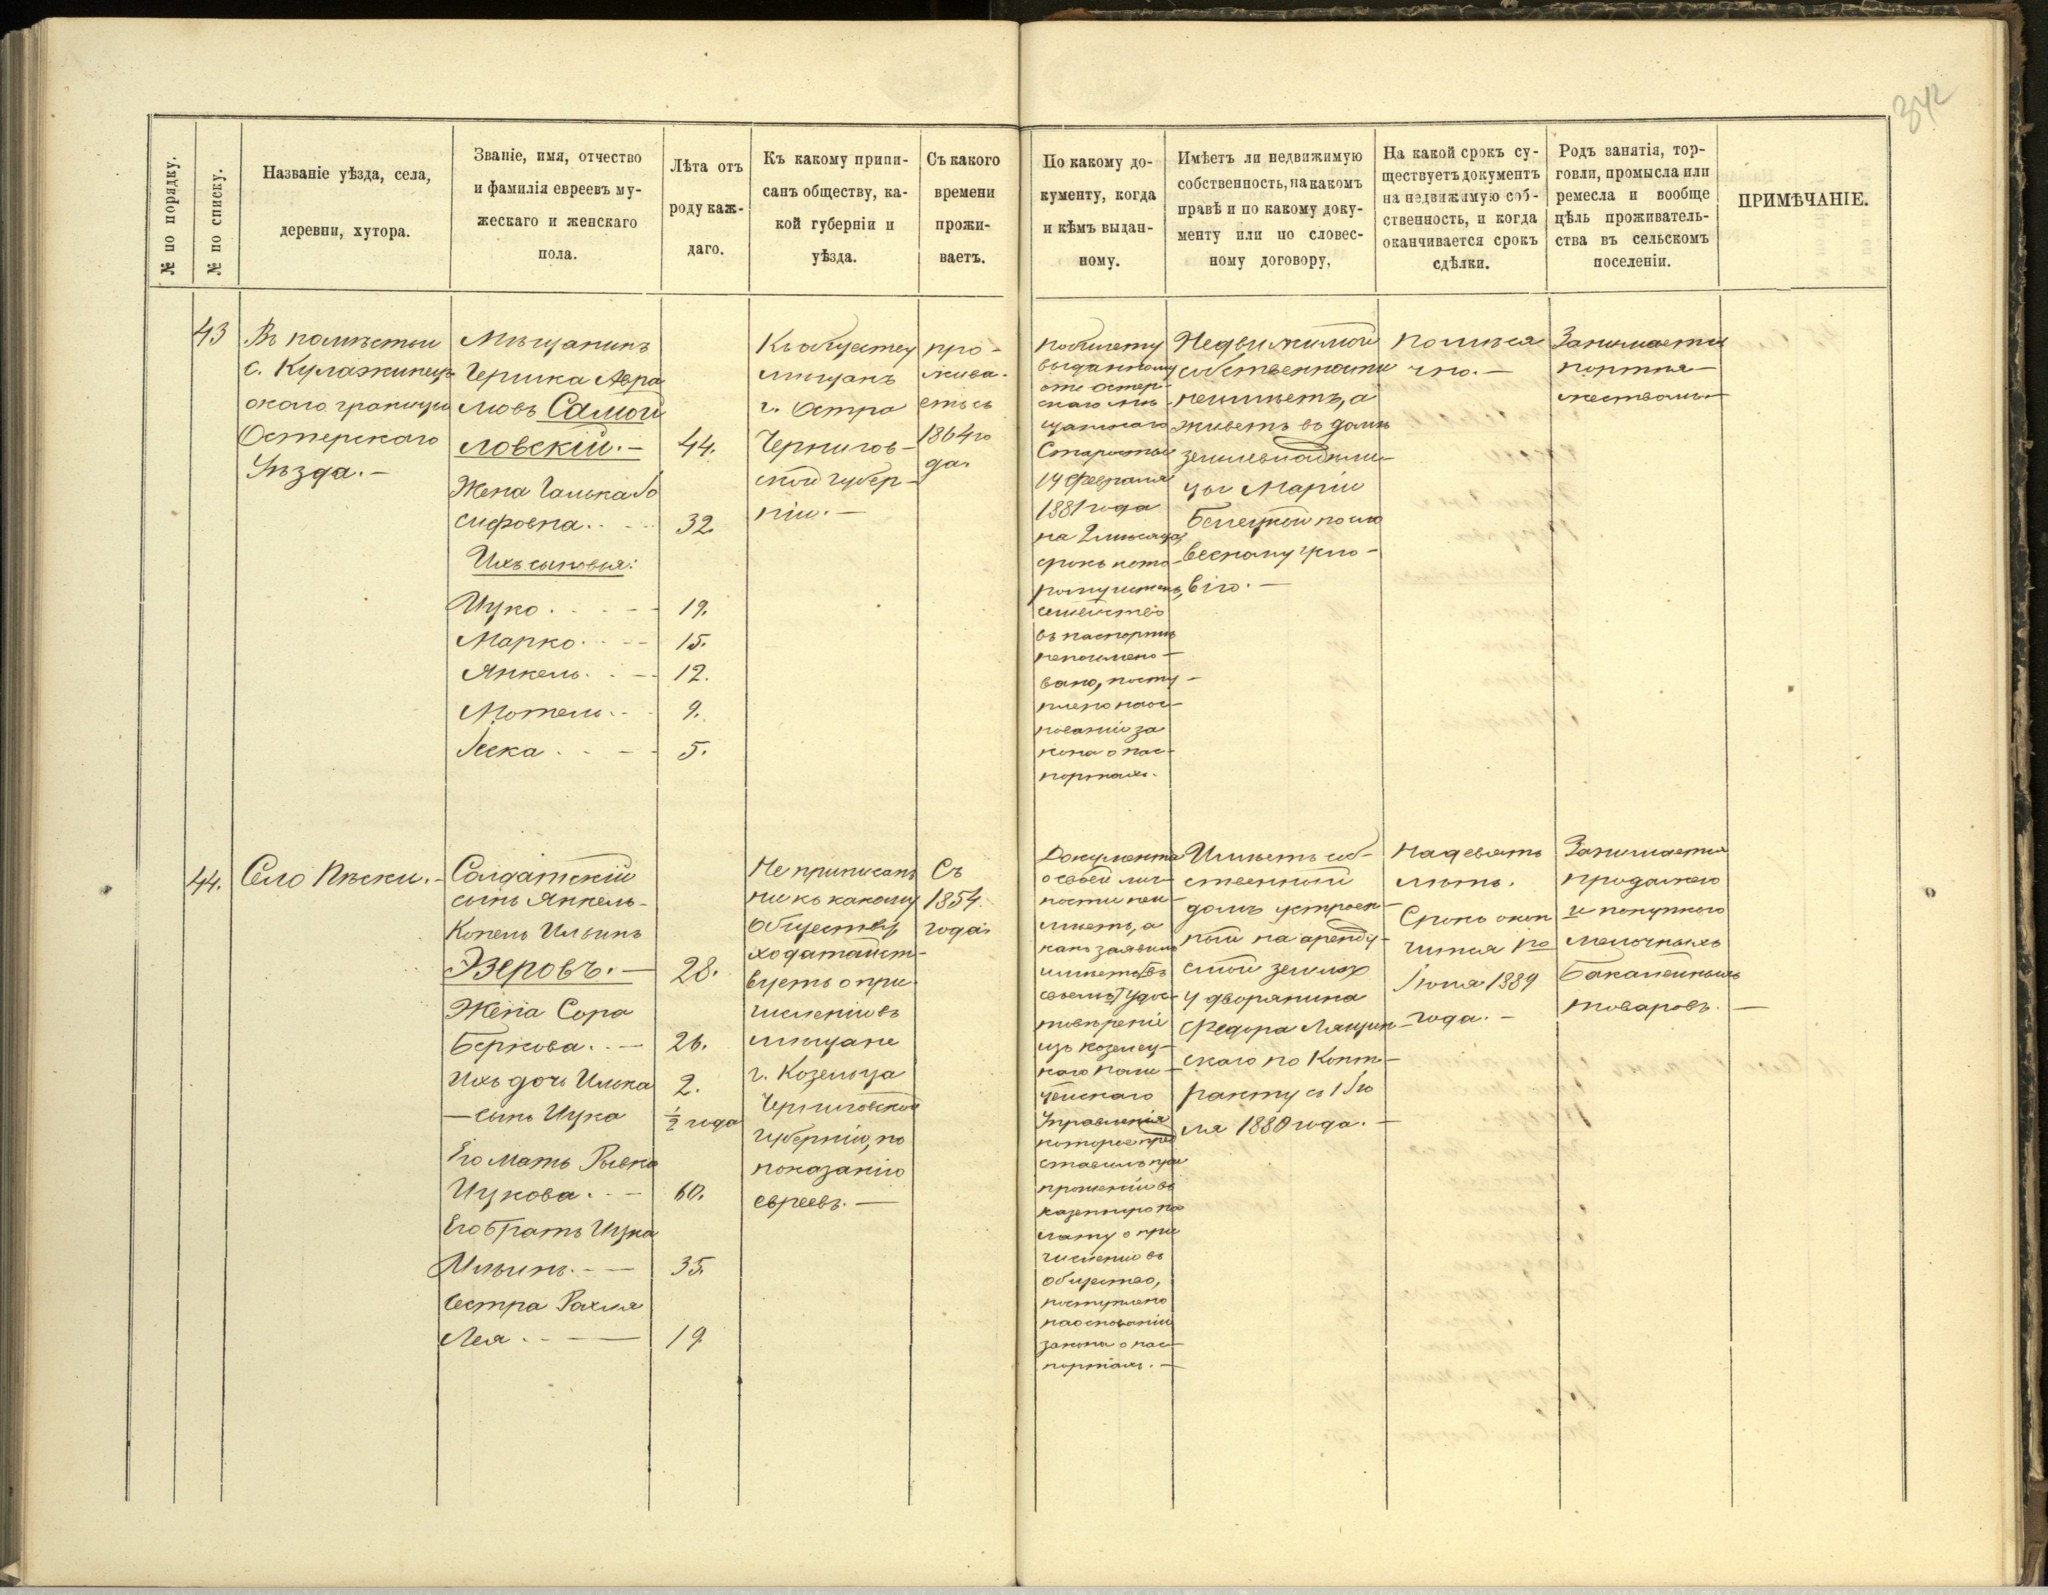 342
№ по порядку.
№ по списку.
Названіе уѣзда, села,
деревни, хутора.
Званіе, имя, отчество
и фамилія евреевъ му-
жескаго и женскаго
пола.
Лѣта отъ
роду каж-
даго.
Къ какому припи-
санъ обществу, ка-
кой губерніи и
уѣзда.
Съ какого
времени
прожи-
ваетъ.
По какому до-
кументу, когда
и кѣмъ выдан-
ному.
Имѣетъ ли недвижимую
собственность, на какомъ
правѣ и по какому доку-
менту или по словес-
ному договору,
На какой срокъ су-
ществуетъ документъ
на недвижимую соб-
ственность, и когда
оканчивается срокъ
сдѣлки.
Родъ занятія, тор-
говли, промысла или
ремесла и вообще
цѣль проживатель-
ства въ сельскомъ
поселеніи.
ПРИМѢЧАНІЕ.
43
Въ помѣстьи
с. Кулажинецъ
около границы
Остерскаго
Уѣзда. —
Мѣщанинъ
Гершка Авра
мовъ Самой
ловскій. —
44.
Жена Галька Іо
сифовна
32.
Ихъ сыновья:
Ицко
19.
Марко
15.
Янкель
12.
Мотель
9.
Іоска
5.
Къ обществу
мѣщанъ
г. Остра
Чернигов-
ской губер-
ніи. —
про-
жива-
етъ съ
1864 го
да.
По билету
выданному
отъ Остер-
скаго мѣ
щанскаго
Старосты
14 Февраля
1881 года
на 2 мѣсяца
срокъ кото-
рому истекъ,
семейство
въ паспортѣ
непоимено-
вано, посту-
плено на ос-
нованіи за
кона о пас-
портахъ.
Недвижимой
собственности
неимѣетъ, а
живетъ въ домѣ
землевладѣли-
цы Маріи
Белецкой по сло
весному усло-
вію. —
Помѣся
чно. —
Занимается
портня-
жествомъ. —
44.
Село Пѣски. —
Солдатскій
сынъ Янкель-
Копель Ильинъ
Эзеровъ. —
28.
Жена Сора
Беркова. —
26.
Ихъ дочь Илька
2.
— сынъ Ицка
½ года
Его мать Рывка
Ицкова. —
60.
Его братъ Ицка
Ильинъ. —
35.
Сестра Рахля
Лея. —
19
Не приписанъ
ни къ какому
обществу,
ходатайст-
вуетъ о при
численіи въ
мѣщане
г. Козельца
Черниговской
губерніи, по
показанію
евреевъ. —
Съ
1854.
года.
Документа
о своей лич-
ности неи-
мѣетъ, а
какъ заявилъ
имѣетъ въ
своемъ удос-
товѣреніи
изъ Козелец-
каго Поли-
цейскаго
Управленія
которое пред
ставилъ при
прошеніи въ
казенную па
лату о при
численіи въ
общество,
поступлено
на основаніи
закона о пас-
портахъ. —
Имѣетъ соб-
ственный
домъ устроен-
ный на аренду-
емой землѣ
у дворянина
Федора Лящин-
скаго по Конт-
ракту съ 1 Ію
ля 1880 года. —
На девять
лѣтъ.
Срокъ окон
чится 1го
Іюля 1889
года. —
Занимается
продажею
и покупкою
мелочныхъ
бакалейныхъ
товаровъ. —